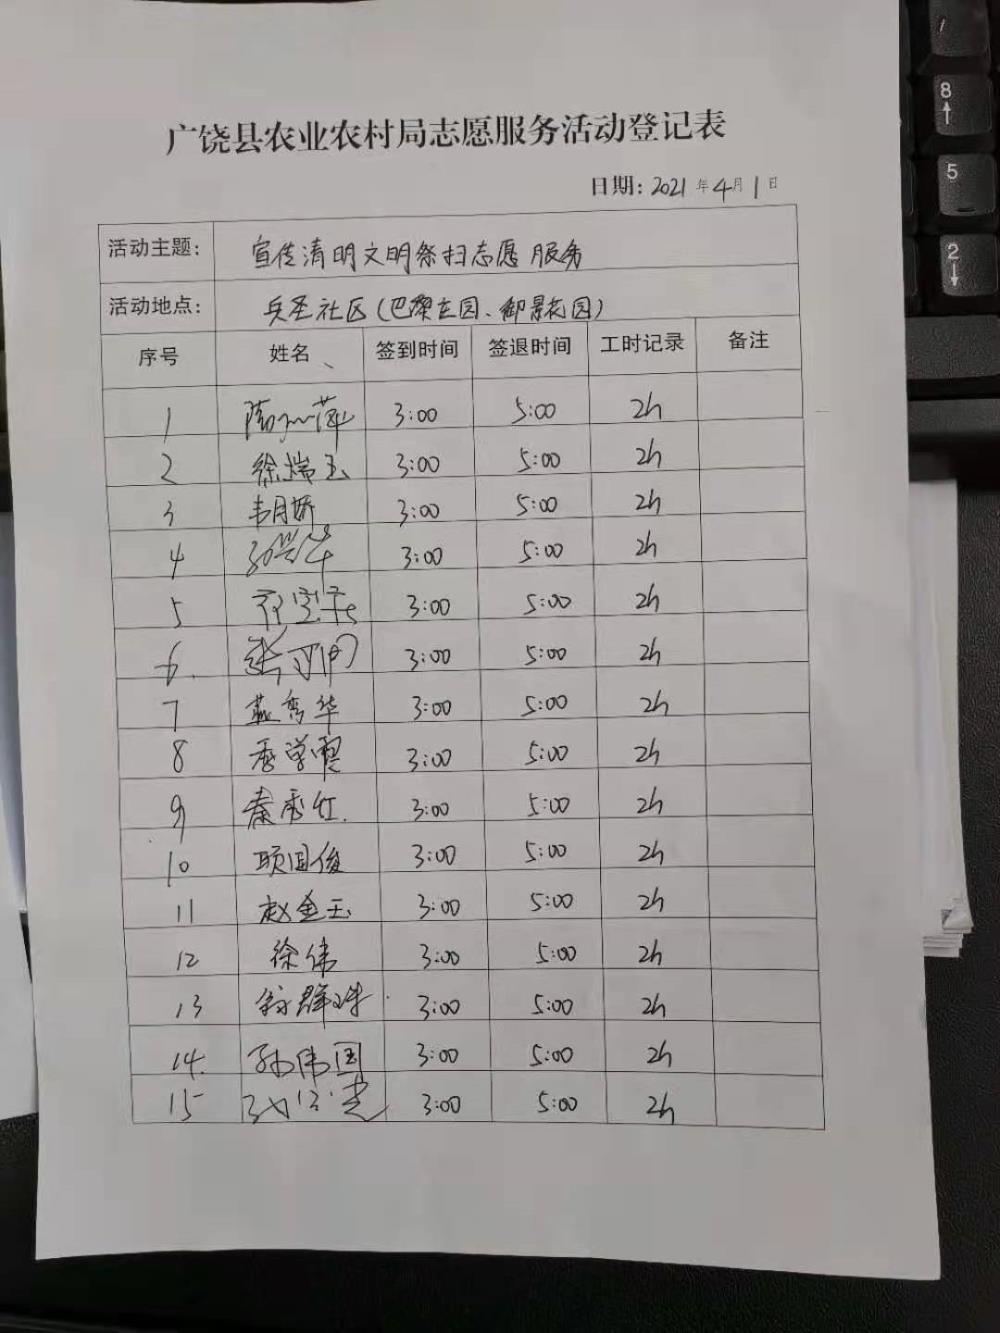 广饶县农业农村局志愿服务活动登记表
日期: 2021年4月1日
活动主题: 宣传清明文明祭扫志愿服务
活动地点: 兵圣社区(巴黎庄园、御景花园)
序号 姓名 签到时间 签退时间 工时记录 备注
1 3:00 5:00 2h
2 徐瑞玉 3:00 5:00 2h
3 韦月娇 3:00 5:00 2h
4 3:00 5:00 2h
5 3:00 5:00 2h
6. 张 3:00 5:00 2h
7 燕秀华 3:00 5:00 2h
8 学霞 3:00 5:00 2h
9 秦秀红. 3:00 5:00 2h
10 项国俊 3:00 5:00 2h
11 赵金玉 3:00 5:00 2h
12 徐伟 3:00 5:00 2h
13 群 3:00 5:00 2h
14. 孙伟国 3:00 5:00 2h
15 3:00 5:00 2h
8
5
2